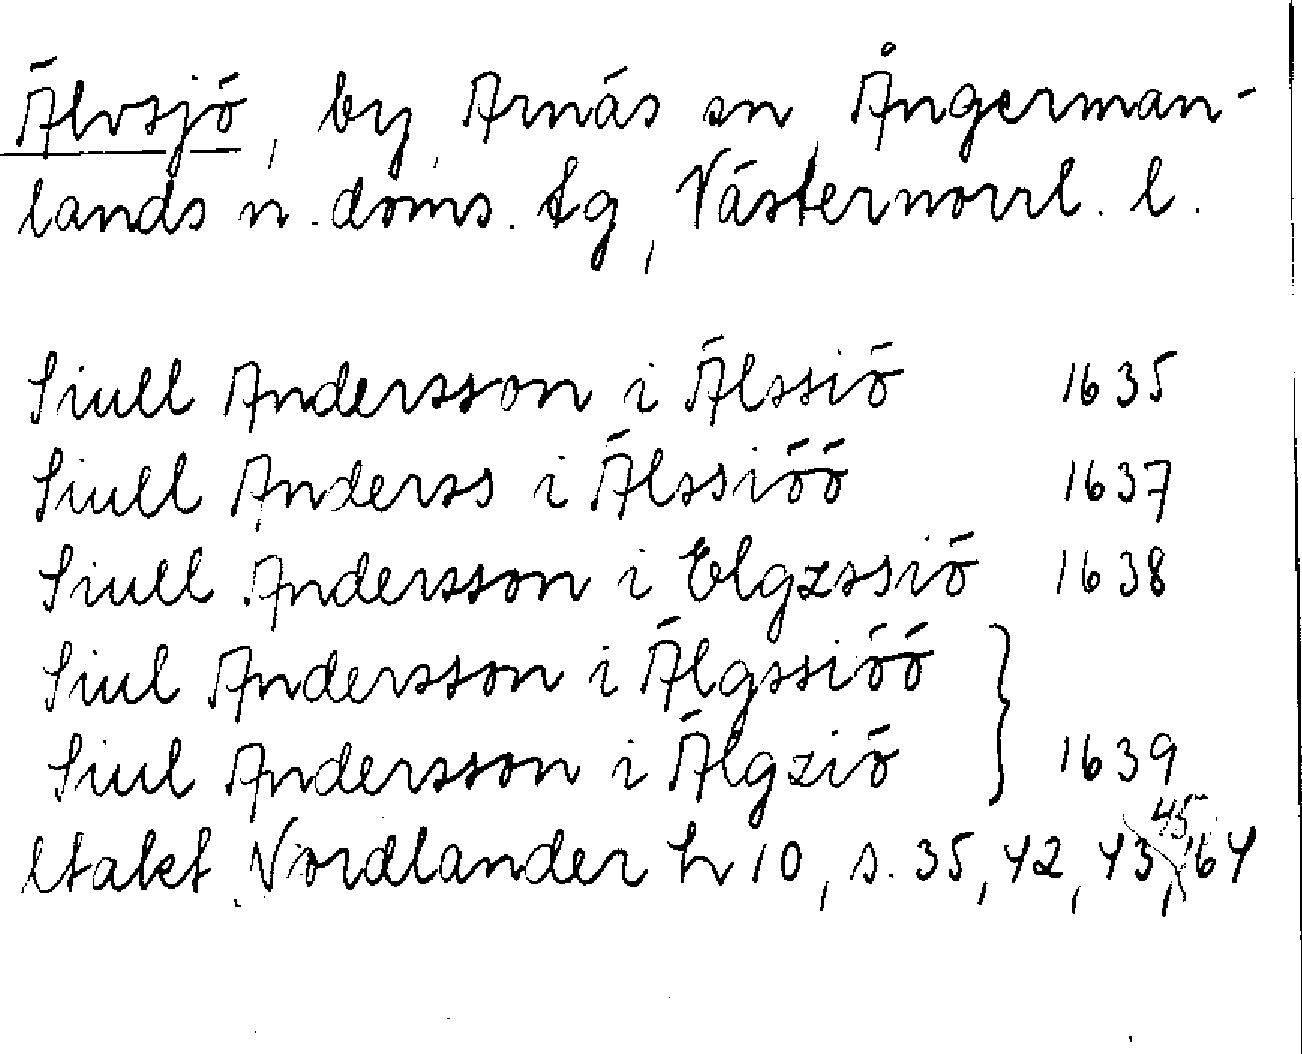 Älvsjö, by, Arnäs sn, Ångerman-
lands n. doms. tg, Västernorrl. l.
Siull Andersson i Älssiö 1635
Siull Anderss i Älssiöö 1637
Siull Andersson i Elgzssiö 1638
Siul Andersson i Älgssiöö
Siul Andersson i Älgziö } 1639
45
Utakt Nordlander h 10, s. 35, 42, 43, 64